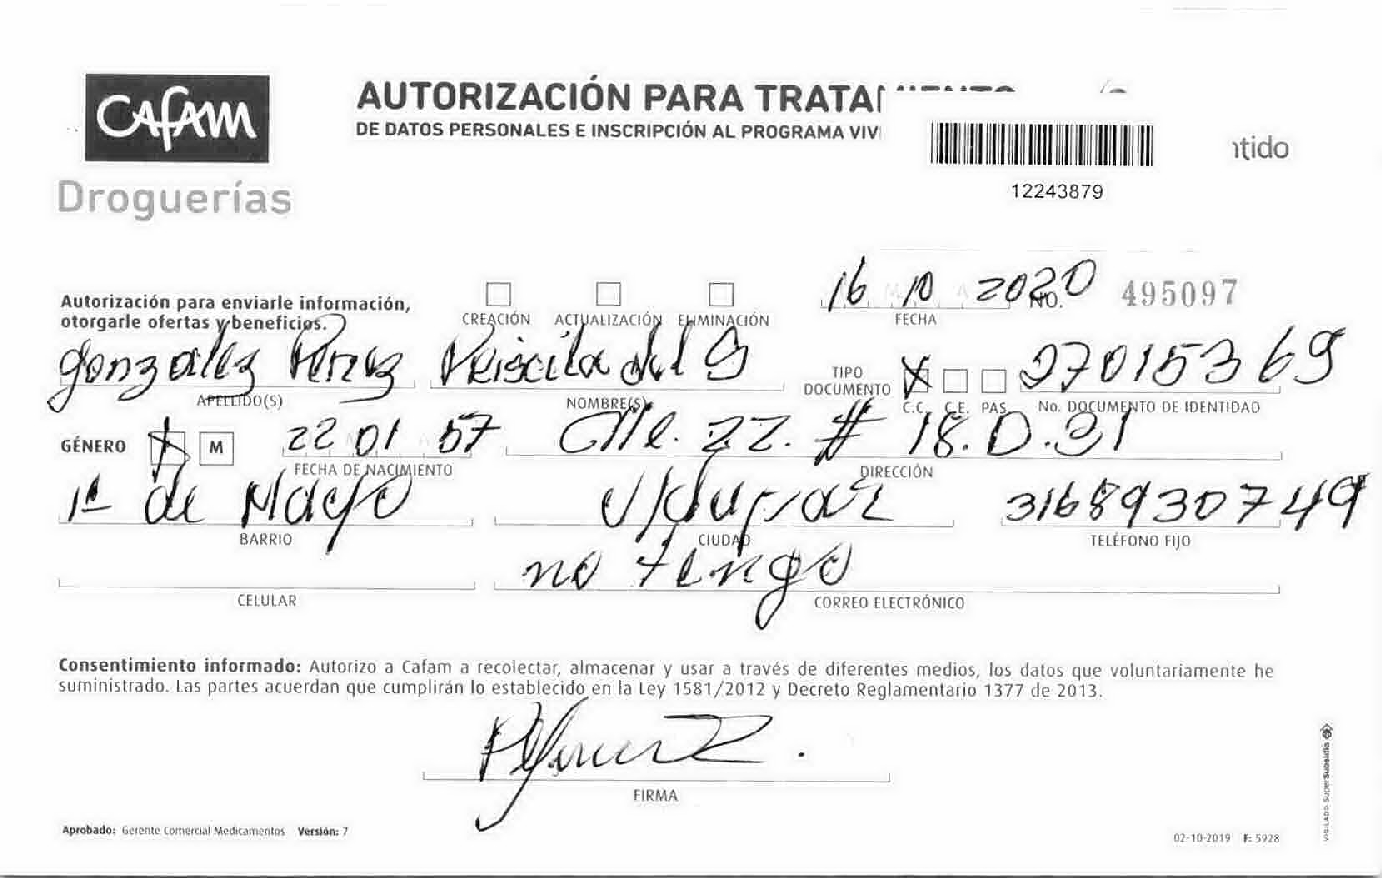 CAFAM
Droguerías
AUTORIZACIÓN PARA TRATAMIENTO
DE DATOS PERSONALES E INSCRIPCIÓN AL PROGRAMA VIV
tido
12243879
Autorización para enviarle información,
otorgarle ofertas y beneficios.
CREACIÓN ACTUALIZACIÓN ELIMINACIÓN
16 10 2020
FECHA
NO. 495097
gonzalez Perez Priscila del S
APELLIDO(S) NOMBRE(S)
TIPO DOCUMENTO X C.C. C.E. PAS.
27015369
No. DOCUMENTO DE IDENTIDAD
GÉNERO X M
22 01 57 Clle. 22. # 18. D. 31
FECHA DE NACIMIENTO DIRECCIÓN
1ª de Mayo V/dupar 3168930749
BARRIO CIUDAD TELÉFONO FIJO
no tengo
CELULAR CORREO ELECTRÓNICO
Consentimiento informado: Autorizo a Cafam a recolectar, almacenar y usar a través de diferentes medios, los datos que voluntariamente he
suministrado. Las partes acuerdan que cumplirán lo establecido en la Ley 1581/2012 y Decreto Reglamentario 1377 de 2013.
FIRMA
Aprobado: Gerente Comercial Medicamentos Versión: 7
02-10-2019 F: 5928
VIGILADO SuperSubsidio